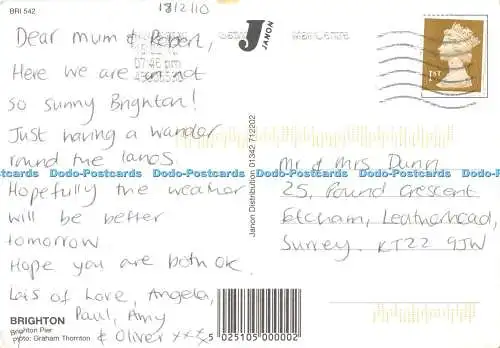 BRI 542
13/2/10
Dear mum & Robert,
Here we are in not
so sunny Brighton!
Just having a wander
round the lanes.
Hopefully the weather
will be better
tomorrow
Hope you are both ok.
Lots of Love, Angela,
Paul, Amy
& Oliver xxxx
BRIGHTON
Brighton Pier
Photo: Graham Thornton
J
JANON
Janon Distribution 01342 712202
07:46 pm
Mail Centre
1ST
Mr & Mrs Dunn
25, Pound Crescent
Fetcham, Leatherhead,
Surrey. KT22 9JW
Dodo-Postcards Dodo-Postcards Dodo-Postcards Dodo-Postcards
5 025105 000002